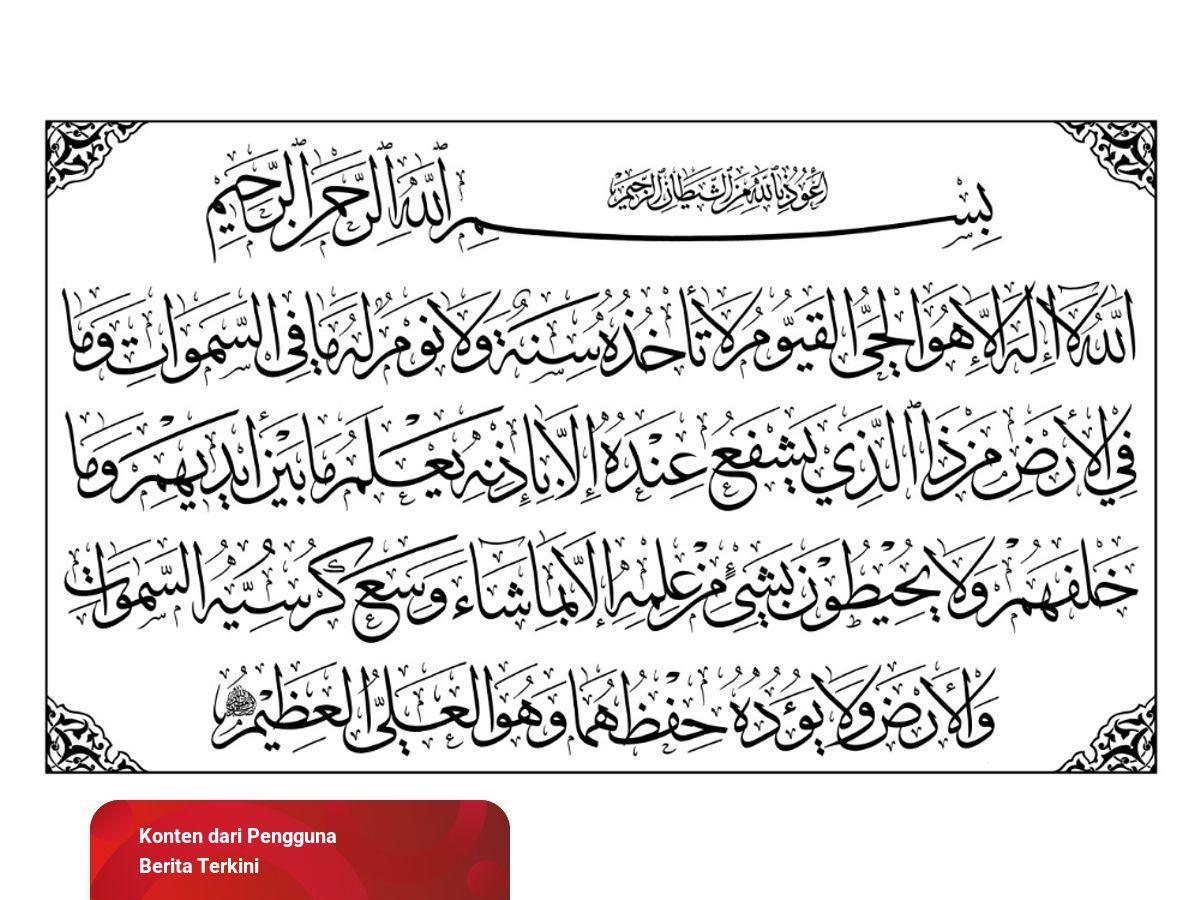 أعوذ بالله من الشيطان الرجيم
بسم الله الرحمن الرحيم
الله لا إله إلا هو الحي القيوم لا تأخذه سنة ولا نوم له ما في السموات وما
في الأرض من ذا الذي يشفع عنده إلا بإذنه يعلم ما بين أيديهم وما
خلفهم ولا يحيطون بشيء من علمه إلا بما شاء وسع كرسيه السموات
والأرض ولا يؤده حفظهما وهو العلي العظيم
Konten dari Pengguna
Berita Terkini